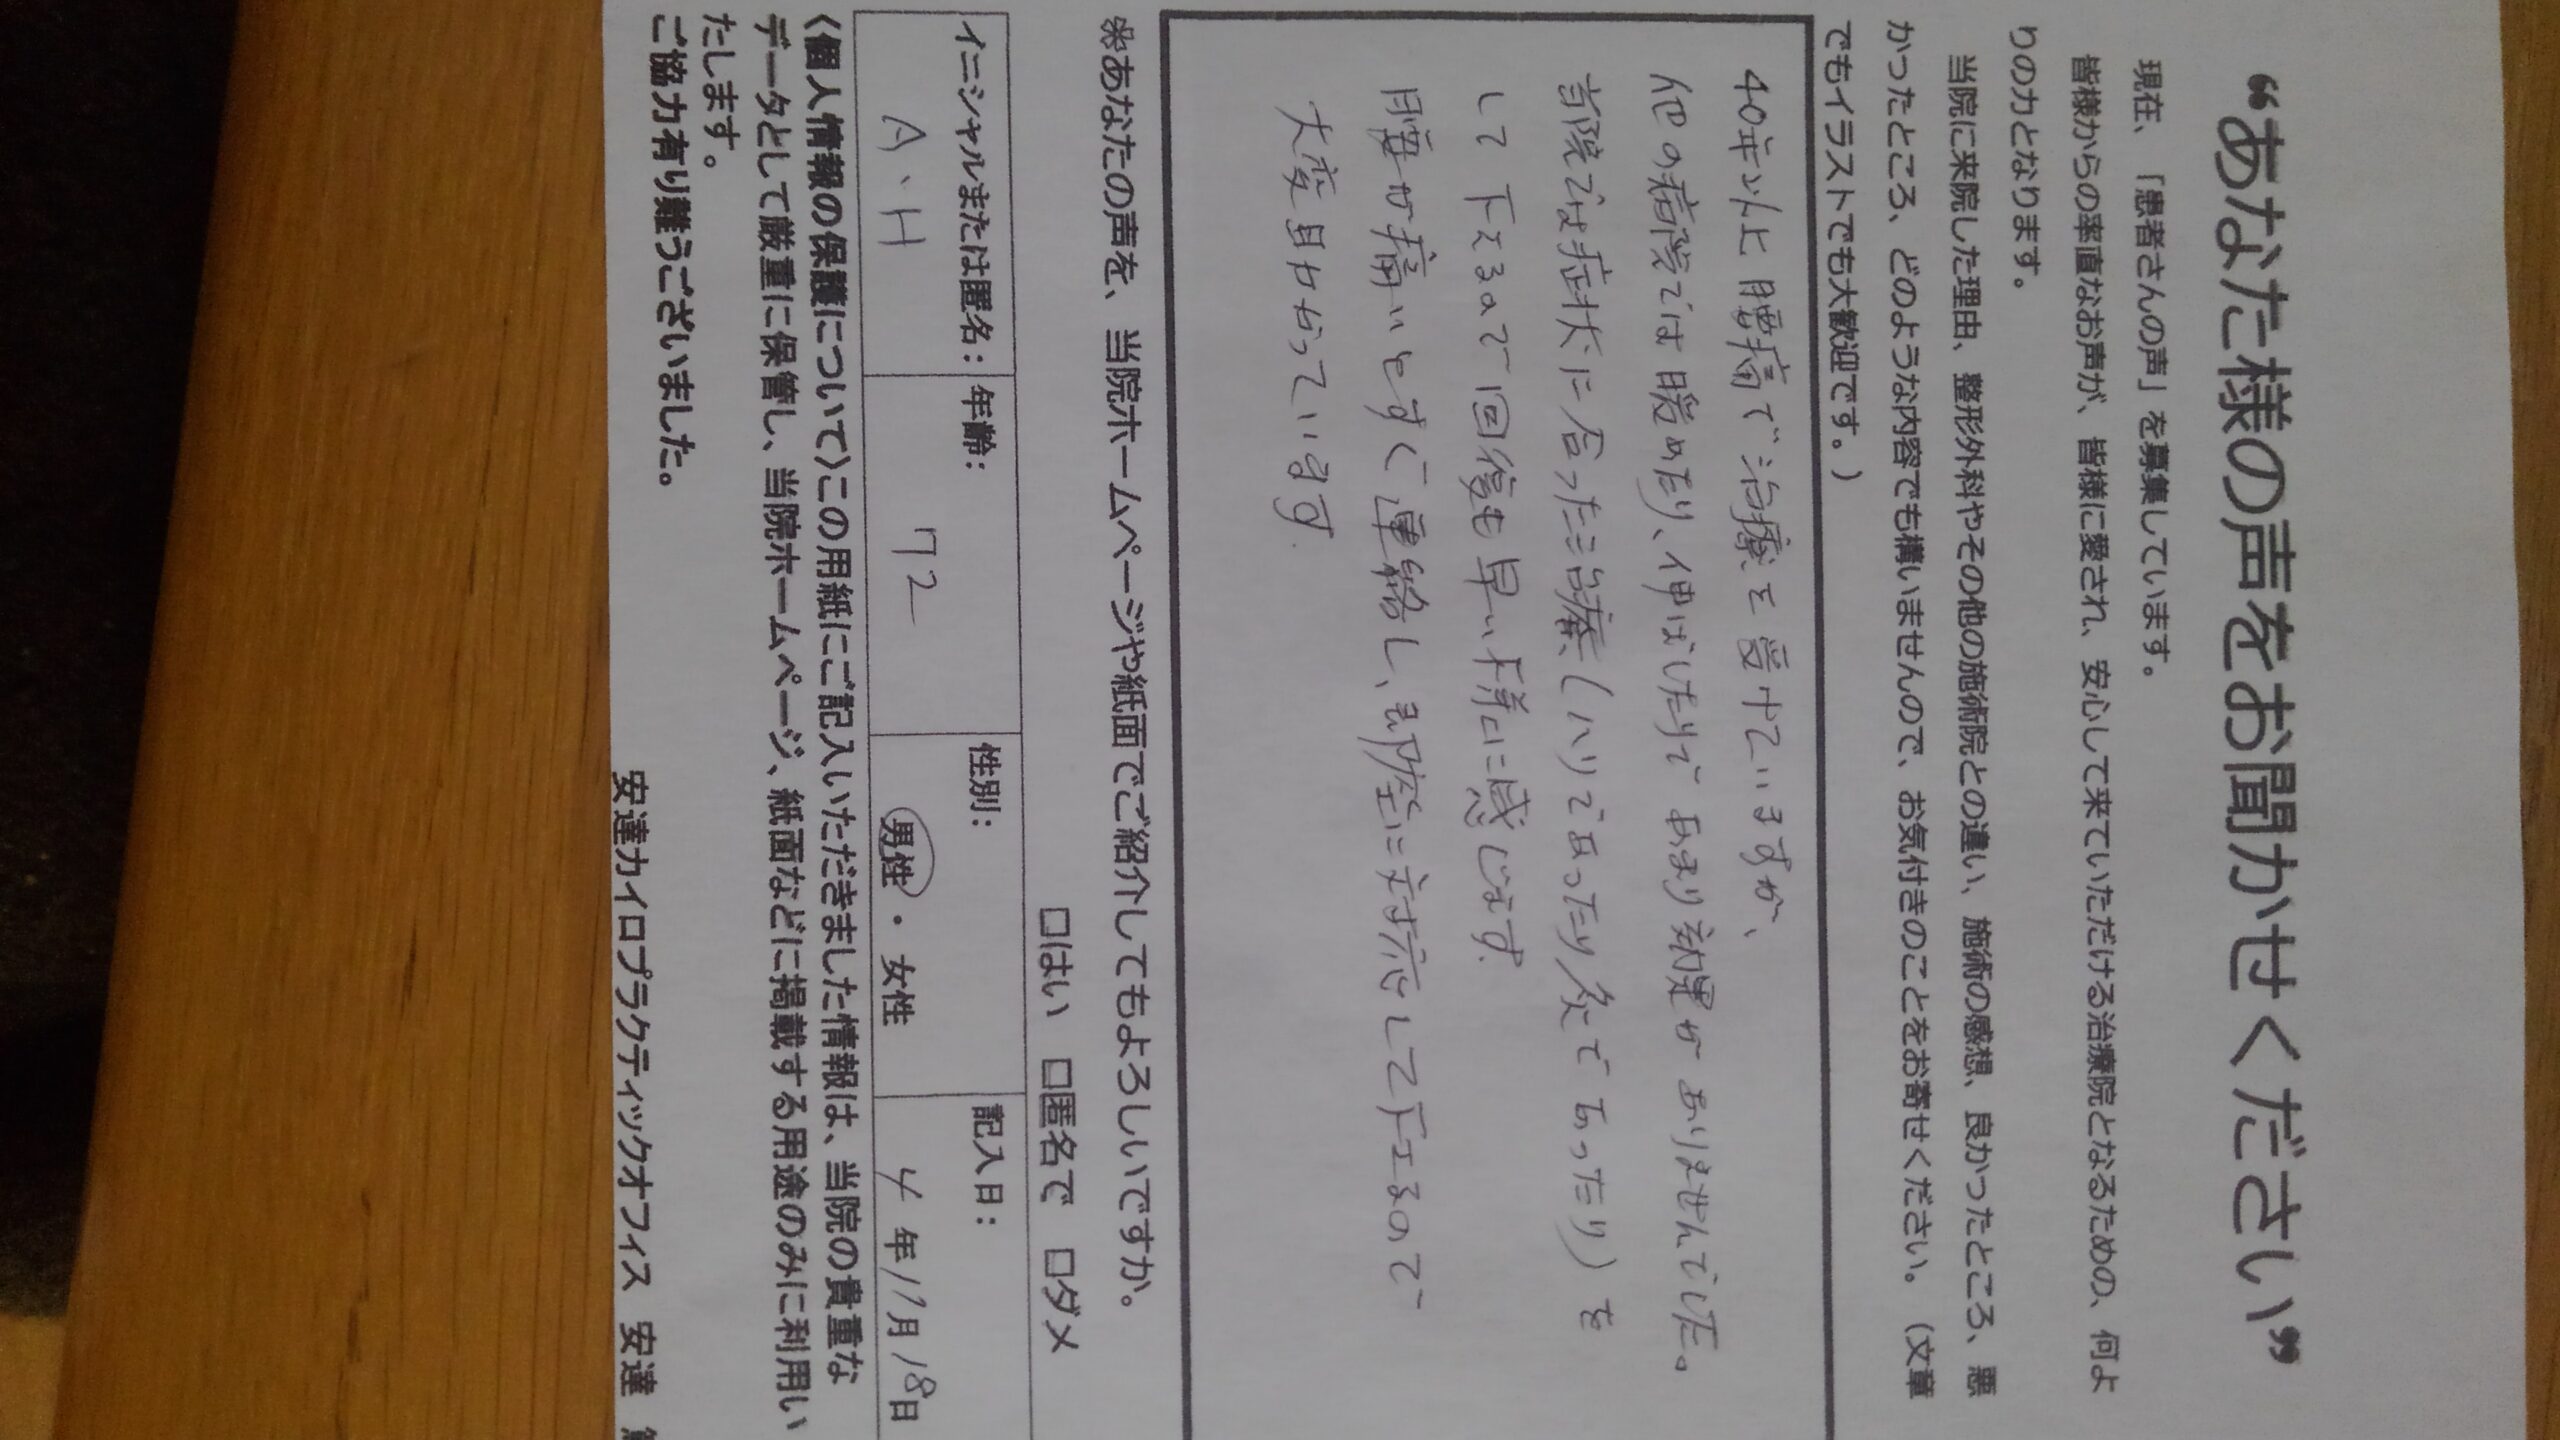 “あなた様の声をお聞かせください”
現在、「患者さんの声」を募集しています。
皆様からの率直なお声が、皆様に愛され、安心して来ていただける治療院となるための、何よ
りの力となります。
当院に来院した理由、整形外科やその他の施術院との違い、施術の感想、良かったところ、悪
かったところ、どのような内容でも構いませんので、お気付きのことをお寄せください。（文章
でもイラストでも大歓迎です。）
40年以上腰痛で治療を受けていますが、
他の病院では暖めたり、伸ばしたりであまり効果がありませんでした。
当院では症状に合った治療（ハリであったり灸であったり）を
して下さるので回復も早い様に感じます。
腰が痛いとすぐ連絡し、即座に対応して下さるので
大変助かっています。
※あなたの声を、当院ホームページや紙面でご紹介してもよろしいですか。
□はい □匿名で □ダメ
イニシャルまたは匿名： 年齢： 性別： 記入日：
A・H 72 男性・女性 4年11月18日
〈個人情報の保護について〉この用紙にご記入いただきました情報は、当院の貴重な
データとして厳重に保管し、当院ホームページ、紙面などに掲載する用途のみに利用い
たします。
ご協力有り難うございました。
安達カイロプラクティックオフィス 安達